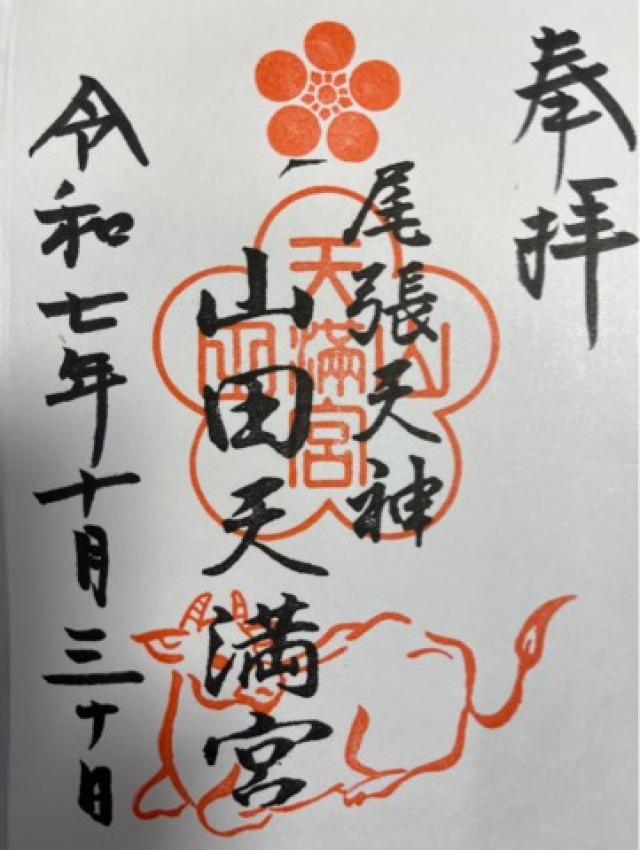 奉拝
尾張天神
山田天満宮
令和七年十月三十日
山田
天満宮